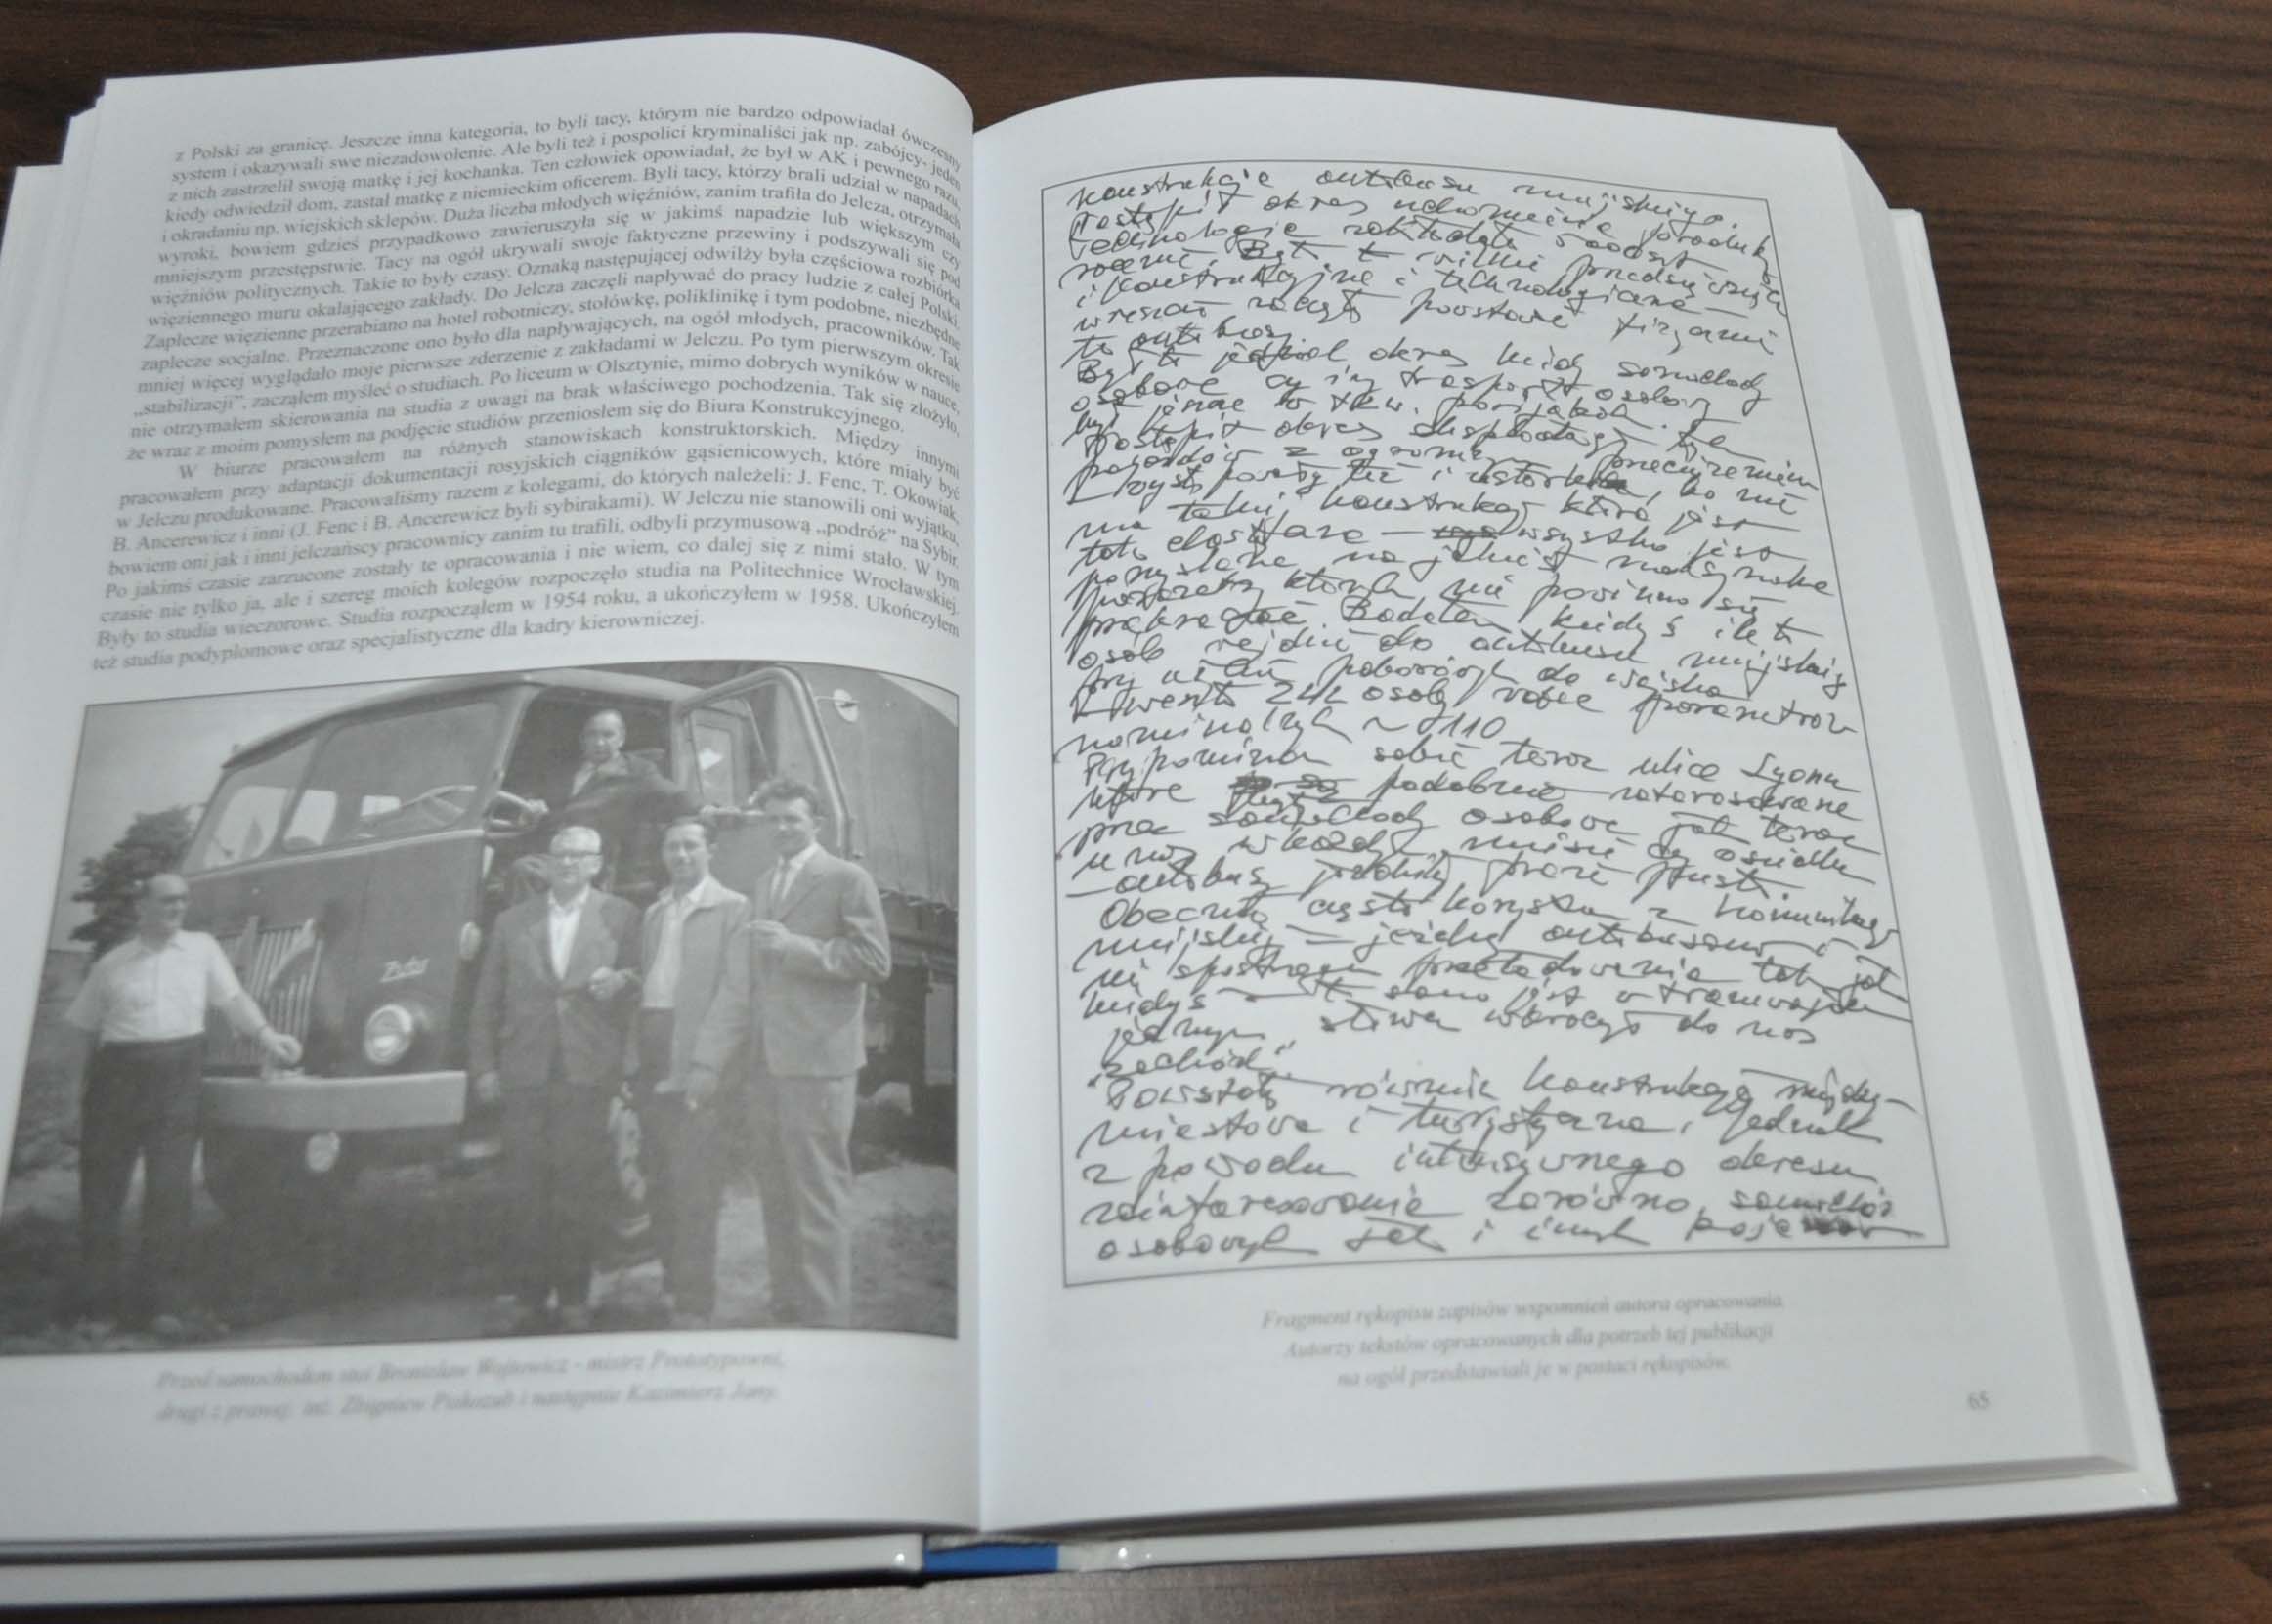 z Polski za granicę. Jeszcze inna kategoria, to byli tacy, którym nie bardzo odpowiadał ówczesny
system i okazywali swe niezadowolenie. Ale byli też i pospolici kryminaliści jak np. zabójcy, jeden
z nich zastrzelił swoją matkę i jej kochanka. Ten człowiek opowiadał, że był w AK i pewnego razu,
kiedy odwiedził dom, zastał matkę z niemieckim oficerem. Byli tacy, którzy brali udział w napadach
i okradaniu np. wiejskich sklepów. Duża liczba młodych więźniów, zanim trafiła do Jelcza, otrzymała
wyroki, bowiem gdzieś przypadkowo zawieruszyła się w jakimś napadzie lub większym czy
mniejszym przestępstwie. Tacy na ogół ukrywali swoje faktyczne przewiny i podszywali się pod
więźniów politycznych. Takie to były czasy. Oznaką następującej odwilży była częściowa rozbiórka
więziennego muru okalającego zakłady. Do Jelcza zaczęli napływać do pracy ludzie z całej Polski.
Zaplecze więzienne przerabiano na hotel robotniczy, stołówkę, poliklinikę i tym podobne, niezbędne
zaplecze socjalne. Przeznaczone ono było dla napływających, na ogół młodych, pracowników. Tak
mniej więcej wyglądało moje pierwsze zderzenie z zakładami w Jelczu. Po tym pierwszym okresie
„stabilizacji”, zacząłem myśleć o studiach. Po liceum w Olsztynie, mimo dobrych wyników w nauce,
nie otrzymałem skierowania na studia z uwagi na brak właściwego pochodzenia. Tak się złożyło,
że wraz z moim pomysłem na podjęcie studiów przeniosłem się do Biura Konstrukcyjnego.
W biurze pracowałem na różnych stanowiskach konstruktorskich. Między innymi
pracowałem przy adaptacji dokumentacji rosyjskich ciągników gąsienicowych, które miały być
w Jelczu produkowane. Pracowaliśmy razem z kolegami, do których należeli: J. Fenc, T. Okowiak,
B. Ancerewicz i inni (J. Fenc i B. Ancerewicz byli sybirakami). W Jelczu nie stanowili oni wyjątku,
bowiem oni jak i inni jelczańscy pracownicy zanim tu trafili, odbyli przymusową „podróż” na Sybir.
Po jakimś czasie zarzucone zostały te opracowania i nie wiem, co dalej się z nimi stało. W tym
czasie nie tylko ja, ale i szereg moich kolegów rozpoczęło studia na Politechnice Wrocławskiej.
Były to studia wieczorowe. Studia rozpocząłem w 1954 roku, a ukończyłem w 1958. Ukończyłem
też studia podyplomowe oraz specjalistyczne dla kadry kierowniczej.
Żubr
Przed samochodem stoi Bronisław Wojtowicz - mistrz Prototypowni,
drugi z prawej: inż. Zbigniew i następnie Kazimierz
konstrukcje autobusu miejskiego.
Nastąpił okres uchomienie produkcji
technologie zakładała 5000 szt
rocznie. Był to wielki przedsięwzięcie
i konstrukcyjne i technologiczne
wreszcie zaczęły powstawać
te autobusy
Był to jednak okres kiedy samochody
osobowe czy inny transport osobowy
był jeszcze w tkw. powijakach.
Nastąpił okres eksploatacji tych
pojazdów z ogromnym przeciążeniem
bo nie
ma takiej konstrukcji która jest
wszystko jest
pomyślane na jakieś maksymalne
których nie powinno się
przekraczać. Badałem kiedyś ile to
osób wejdzie do autobusu miejskiego
przy poborowych do wojska
242 osoby wobec parametrów
nominalnych ~ 110
Przypominam sobie teraz ulice Lyonu
które były podobnie zatarasowane
przez samochody osobowe jak teraz
u nas w każdym mieście czy osiedlu
– autobusy jeździły prawie puste.
Obecnie często korzystam z komunikacji
miejskiej – jeżdżę autobusami i
nie spostrzegam przeładowania tak jak
kiedyś – to samo jest w tramwajach
jednym słowem wkroczył do nas
„zachód”
Powstały również konstrukcje między-
miastowe i turystyczne, jednak
z powodu intensywnego okresu
zainteresowanie zarówno samochod.
osobowych jak i innych
Fragment rękopisu zapisów wspomnień autora opracowania.
Autorzy tekstów opracowanych dla potrzeb tej publikacji
na ogół przedstawiali je w postaci rękopisów.
65